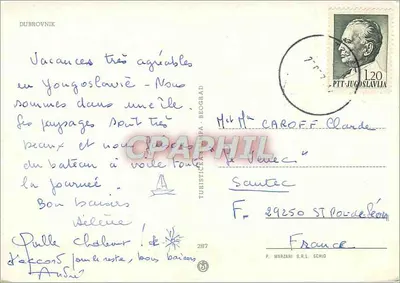 DUBROVNIK
Vacances très agréables
en Yougoslavie - Nous
sommes dans une île.
Les paysages sont très
beaux et nous faisons
du bateau à voile toute
la journée.
Bon baisers
Hélène
Quelle chaleur ! &
d'accord pour le reste, bons baisers
André
TURISTIČKA ŠTAMPA - BEOGRAD
287
1.20
PTT-JUGOSLAVIJA
CPAPHIL
M et Mme CAROFF Claude
Santec
F. 29250 St Pol de Léon
France